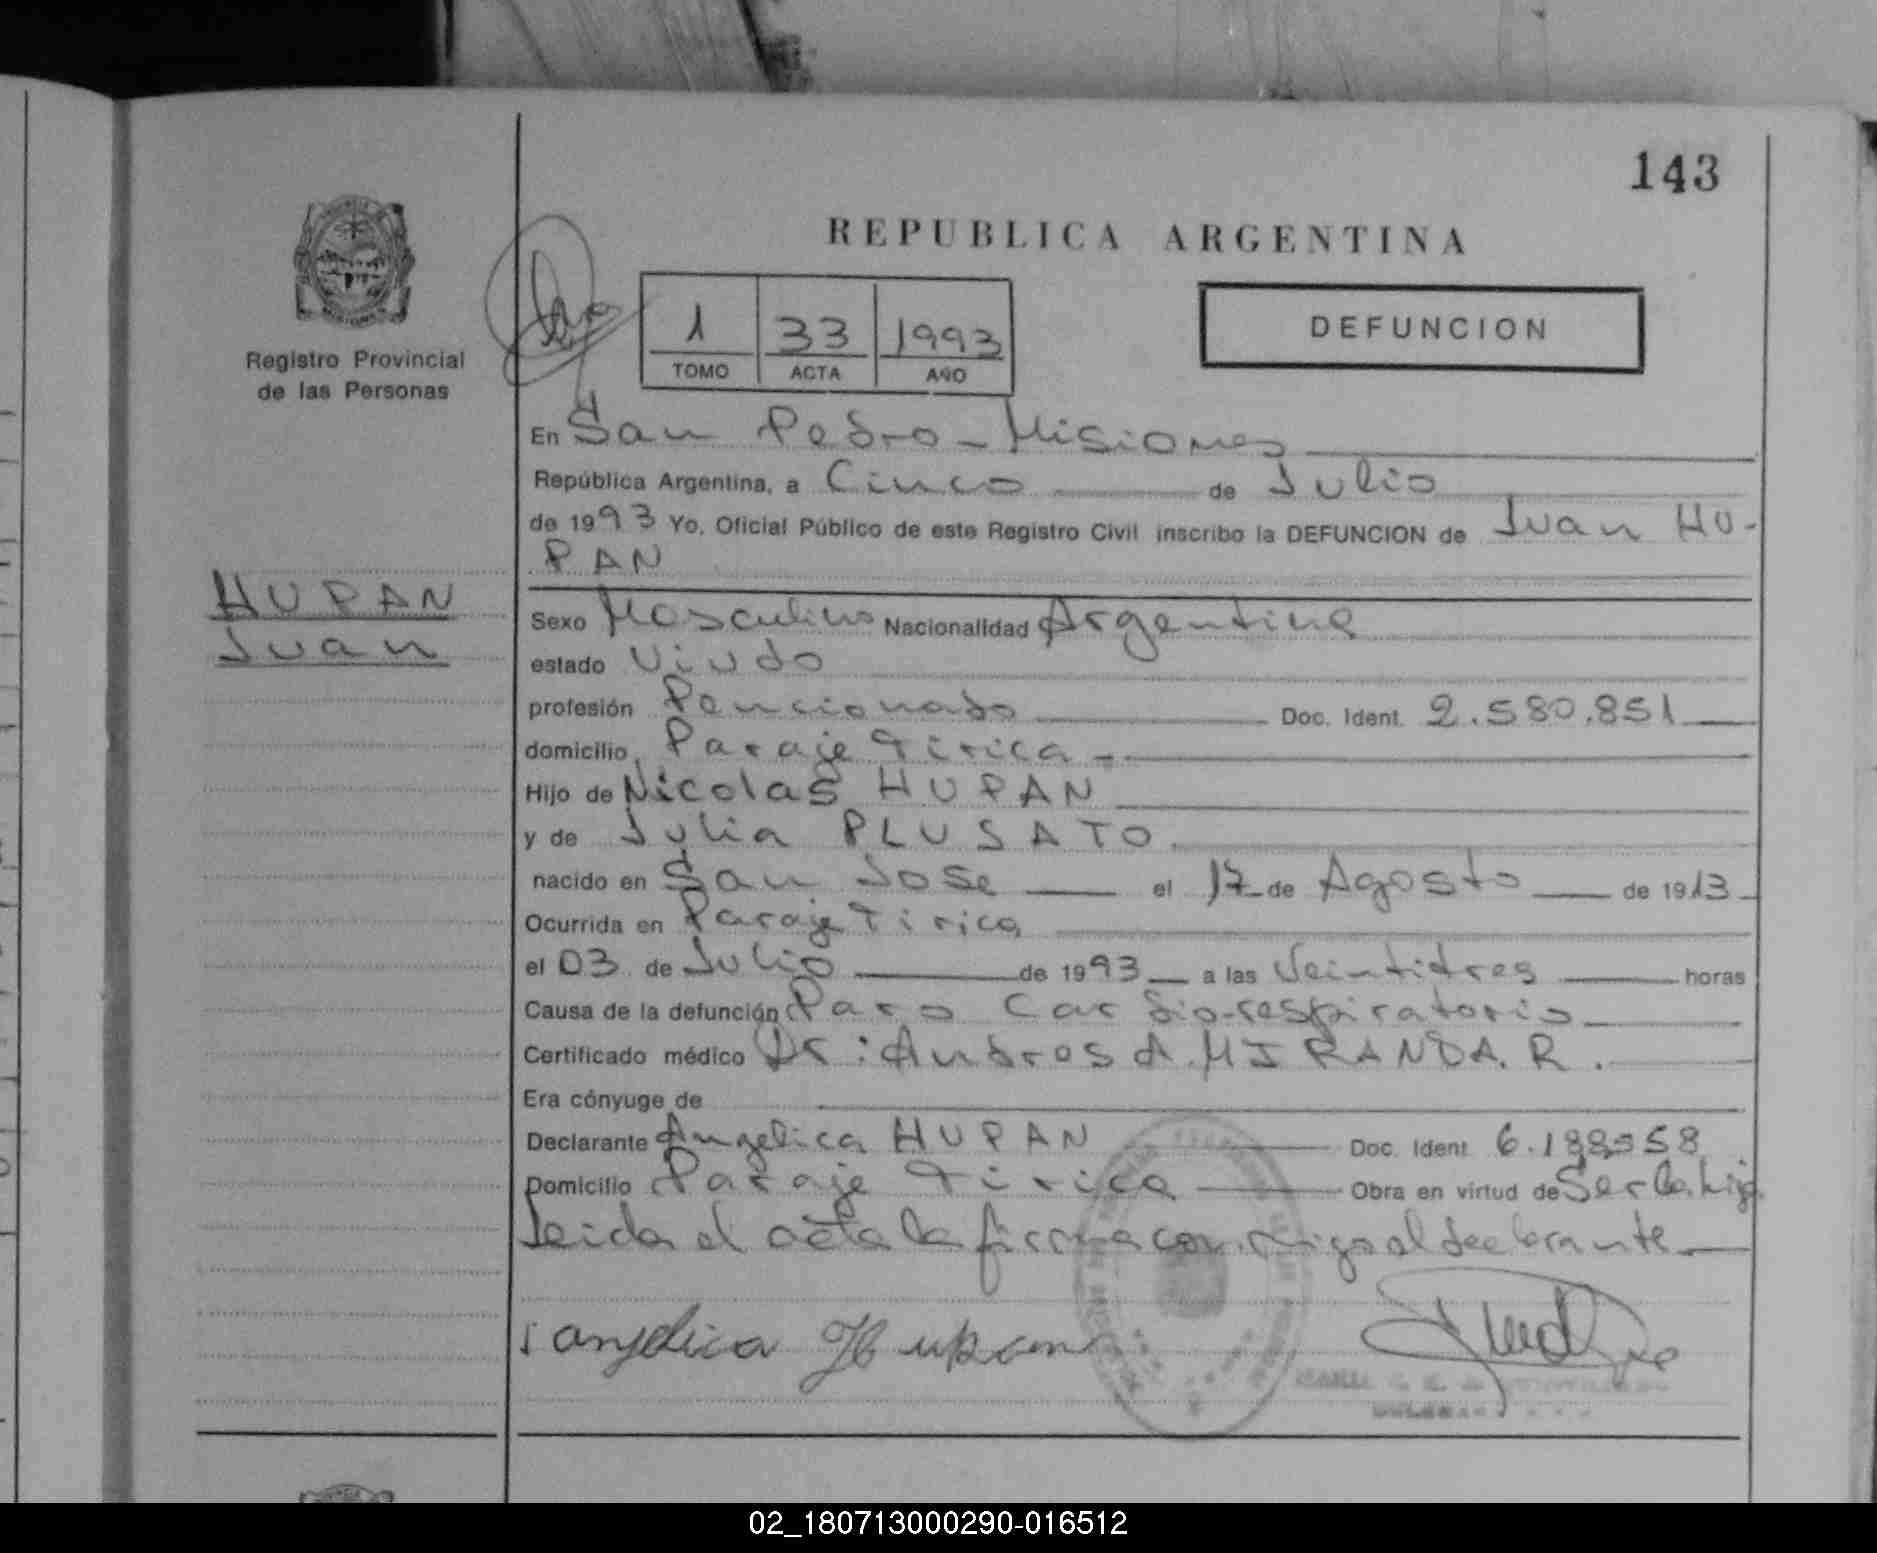 143
REPUBLICA ARGENTINA
Registro Provincial
de las Personas
1 33 1993
TOMO ACTA AÑO
DEFUNCION
En San Pedro - Misiones
República Argentina, a Cinco de Julio
de 1993 Yo, Oficial Público de este Registro Civil inscribo la DEFUNCION de Juan HU-
PAN
HUPAN
Juan
Sexo Masculino Nacionalidad Argentina
estado Viudo
profesión Pencionado Doc. Ident. 2.580.851
domicilio Paraje Tirica -
Hijo de Nicolas HUPAN
y de Julia PLUSATO
nacido en San Jose el 17 de Agosto de 1913
Ocurrida en Paraje Tirica
el 03 de Julio de 1993 a las Veintidres horas
Causa de la defunción Paro Cardio-respiratorio
Certificado médico Dr: Andres A. MIRANDA. R.
Era cónyuge de
Declarante Angelica HUPAN Doc. Ident.
Domicilio Paraje Tirica Obra en virtud de Ser la hija
Leida el acta la firma con migo el declarante
angelica Hupan
02_180713000290-016512